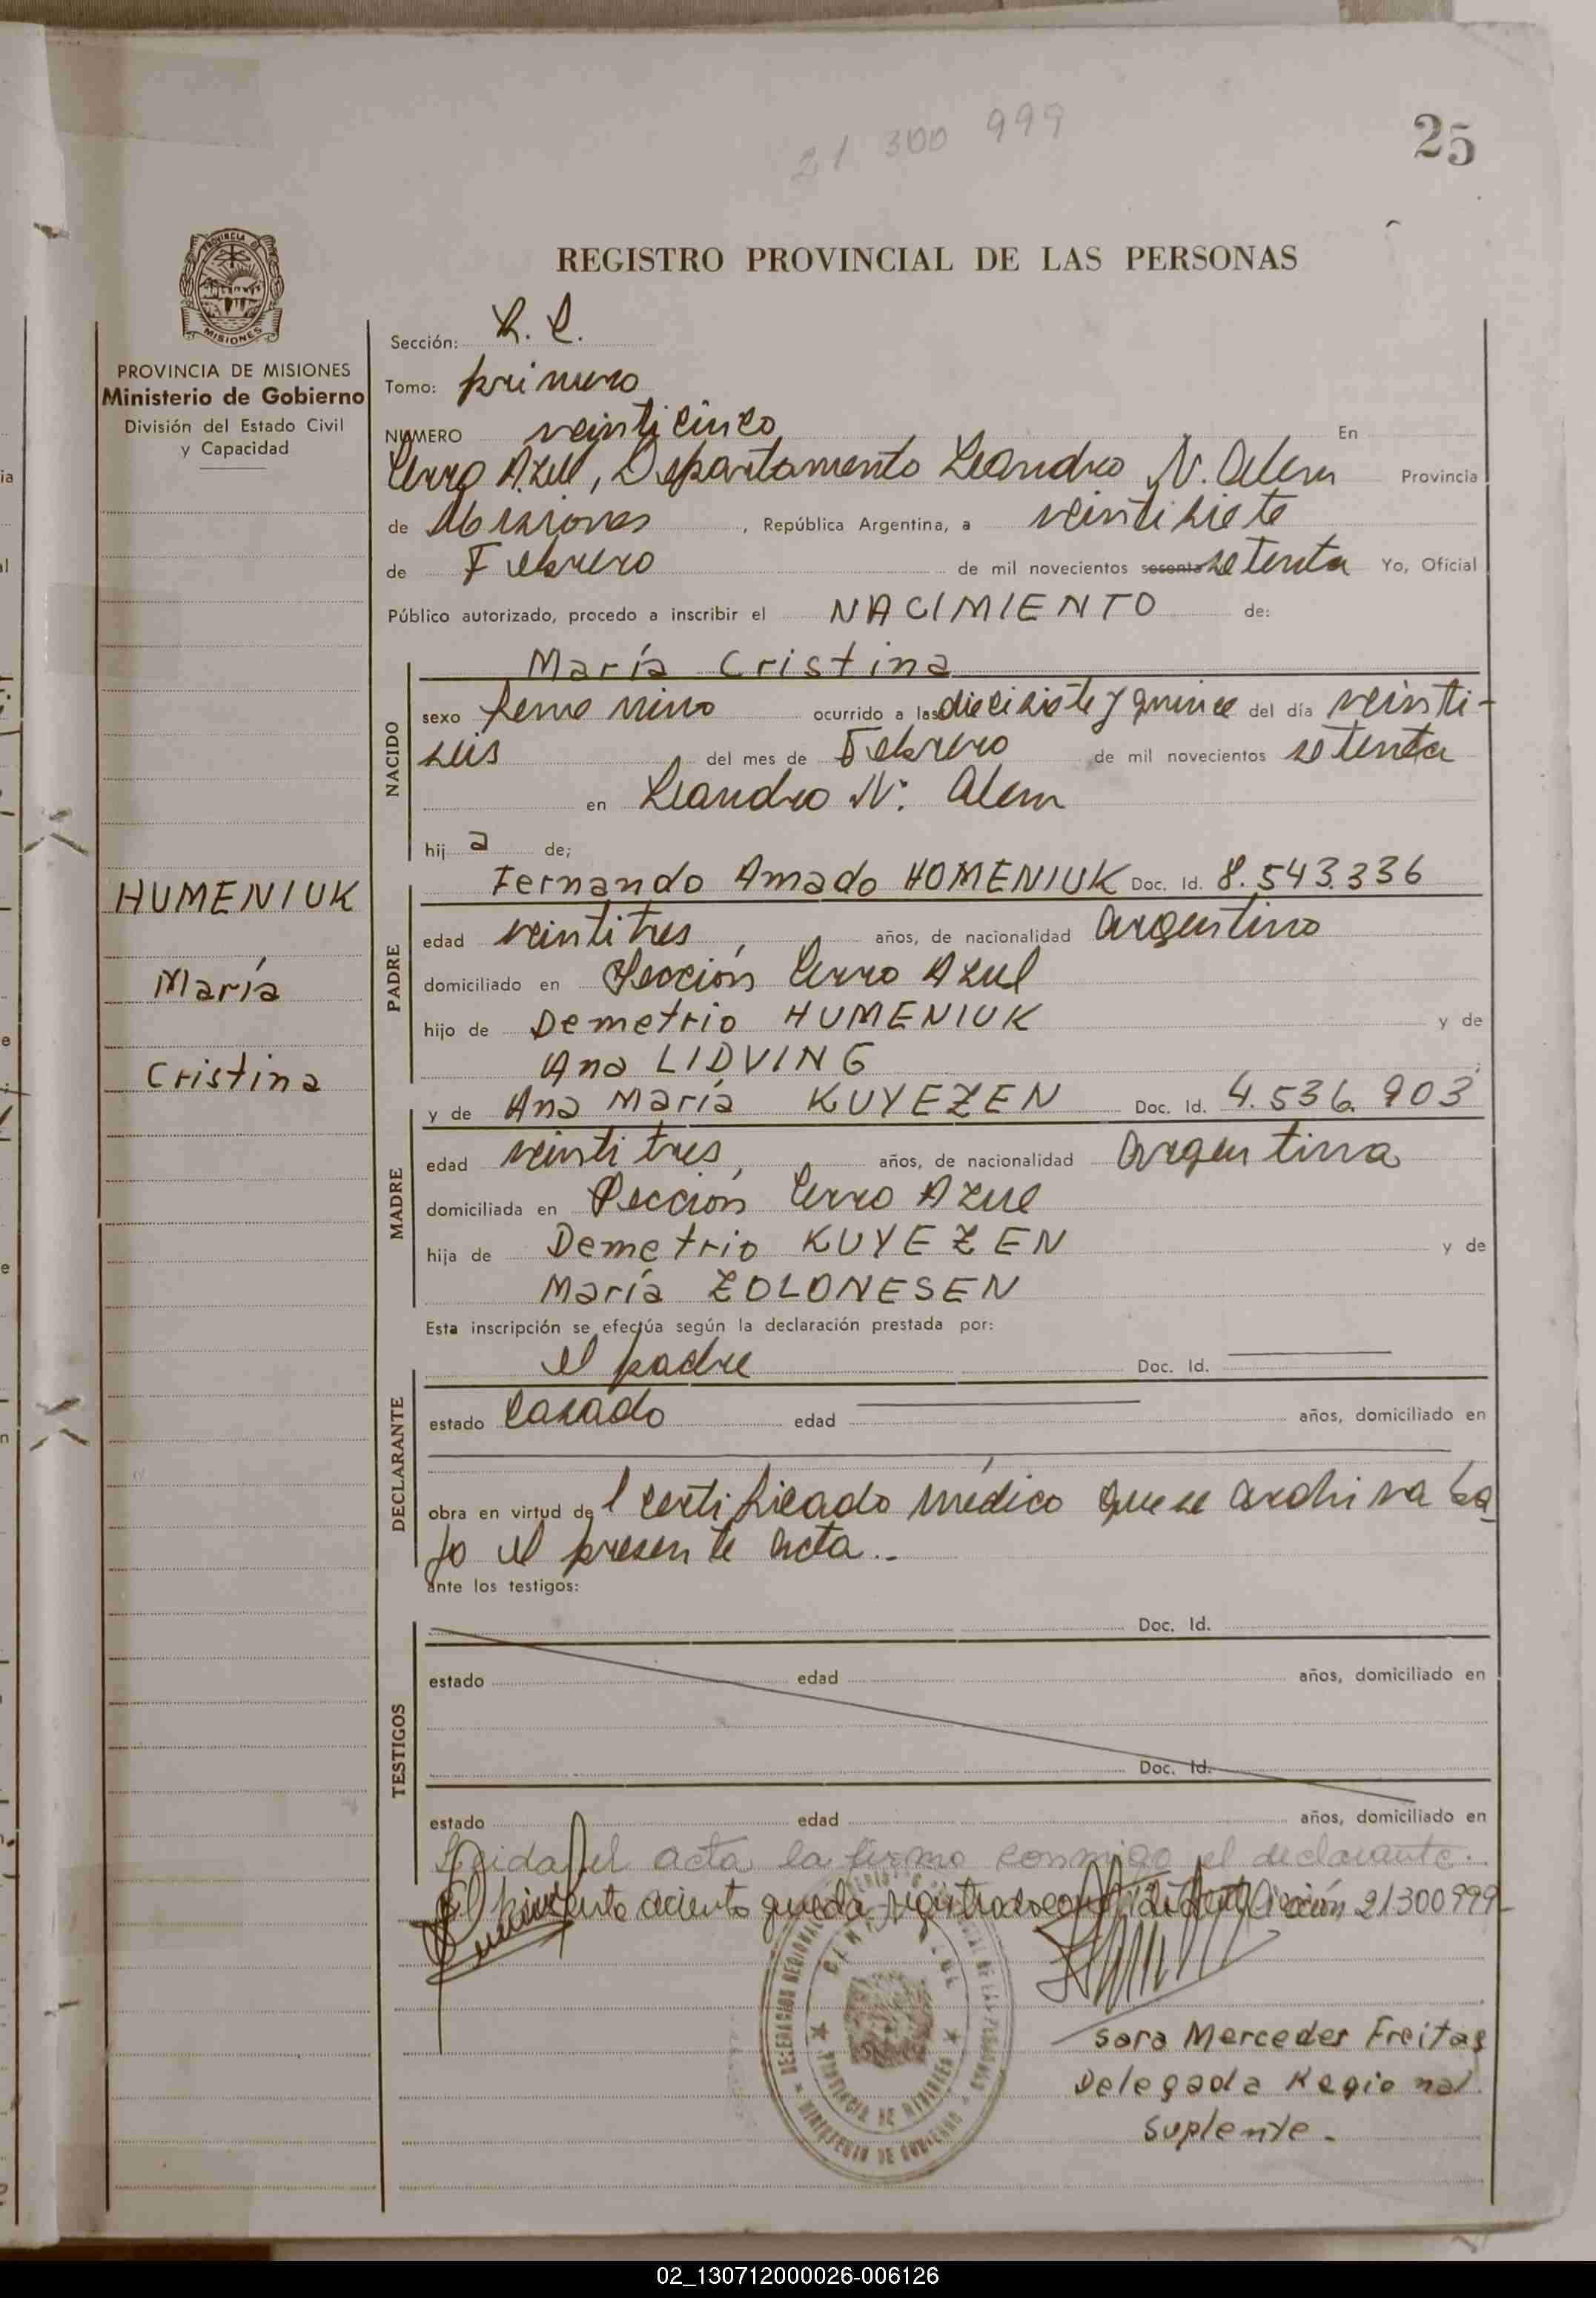 21 300 999
25
REGISTRO PROVINCIAL DE LAS PERSONAS
PROVINCIA DE
MISIONES
PROVINCIA DE MISIONES
Ministerio de Gobierno
División del Estado Civil
y Capacidad
HUMENIUK
María
Cristina
Sección:
Tomo: primero
NUMERO veinticinco En
Cerro Azul, Departamento Leandro N. Alem Provincia
de Misiones, República Argentina, a veintisiete
de Febrero de mil novecientos sesenta setenta Yo, Oficial
Público autorizado, procedo a inscribir el NACIMIENTO de:
NACIDO
María Cristina
sexo femenino ocurrido a las diecisiete y quince del día veinti-
seis del mes de Febrero de mil novecientos setenta
en Leandro N. Alem
hij a de;
PADRE
Fernando Amado HOMENIUK Doc. Id. 8.543.336
edad veintitres, años, de nacionalidad argentino
domiciliado en Sección Cerro Azul
hijo de Demetrio HUMENIUK y de
Ana LIDVING
MADRE
y de Ana María KUYEZEN Doc. Id. 4.536.903
edad veintitres, años, de nacionalidad argentina
domiciliada en Sección Cerro Azul
hija de Demetrio KUYEZEN y de
María ZOLONESEN
Esta inscripción se efectúa según la declaración prestada por:
DECLARANTE
el padre Doc. Id.
estado Casado edad años, domiciliado en
obra en virtud del certificado médico que se archiva ba
jo el presente acta..
ante los testigos:
TESTIGOS
Doc. Id.
estado edad años, domiciliado en
Doc. Id.
estado edad años, domiciliado en
Leida el acta la firma conmigo el declarante.
El presente asiento queda registrado con identificación 21300999
DELEGACION REGIONAL
PROVINCIA DE MISIONES
MINISTERIO DE GOBIERNO
Sara Mercedes Freitas
Delegada Regional
Suplente.
02_130712000026-006126